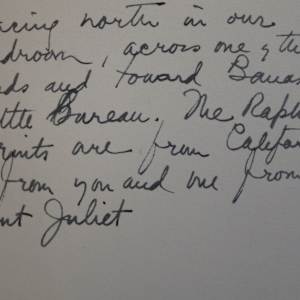 acing north in our
droom, across one of the
ds and toward Banas
ttle Bureau. The Raph
rints are from Califor
from you and one from
unt Juliet